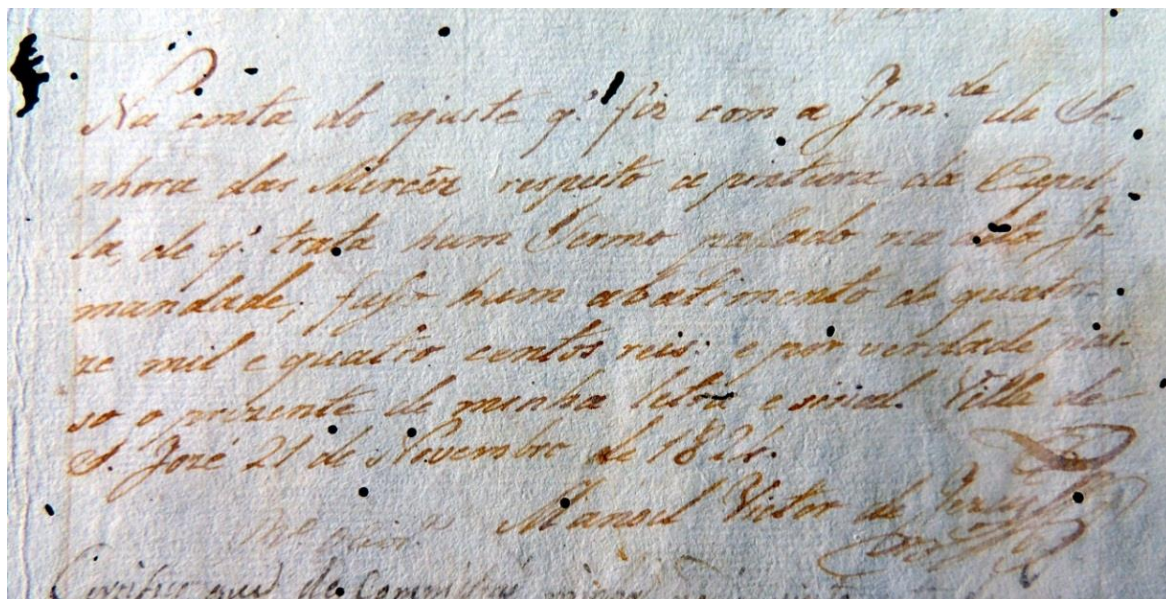 Na conta do ajuste q.' fiz com a Irm.de da Se-
nhora das Mercês respeito a pintura da Capel-
la, de q.' trata hum Termo passado na dita Ir
mandade; fasso hum abatimento de quator-
ze mil e quatro centos reis: e por verdade pas-
so o prezente de minha letra e sinal. Villa de
S. José 21 de Novembro de 1824.
Manoel Victor de Jezus
Certifico que de